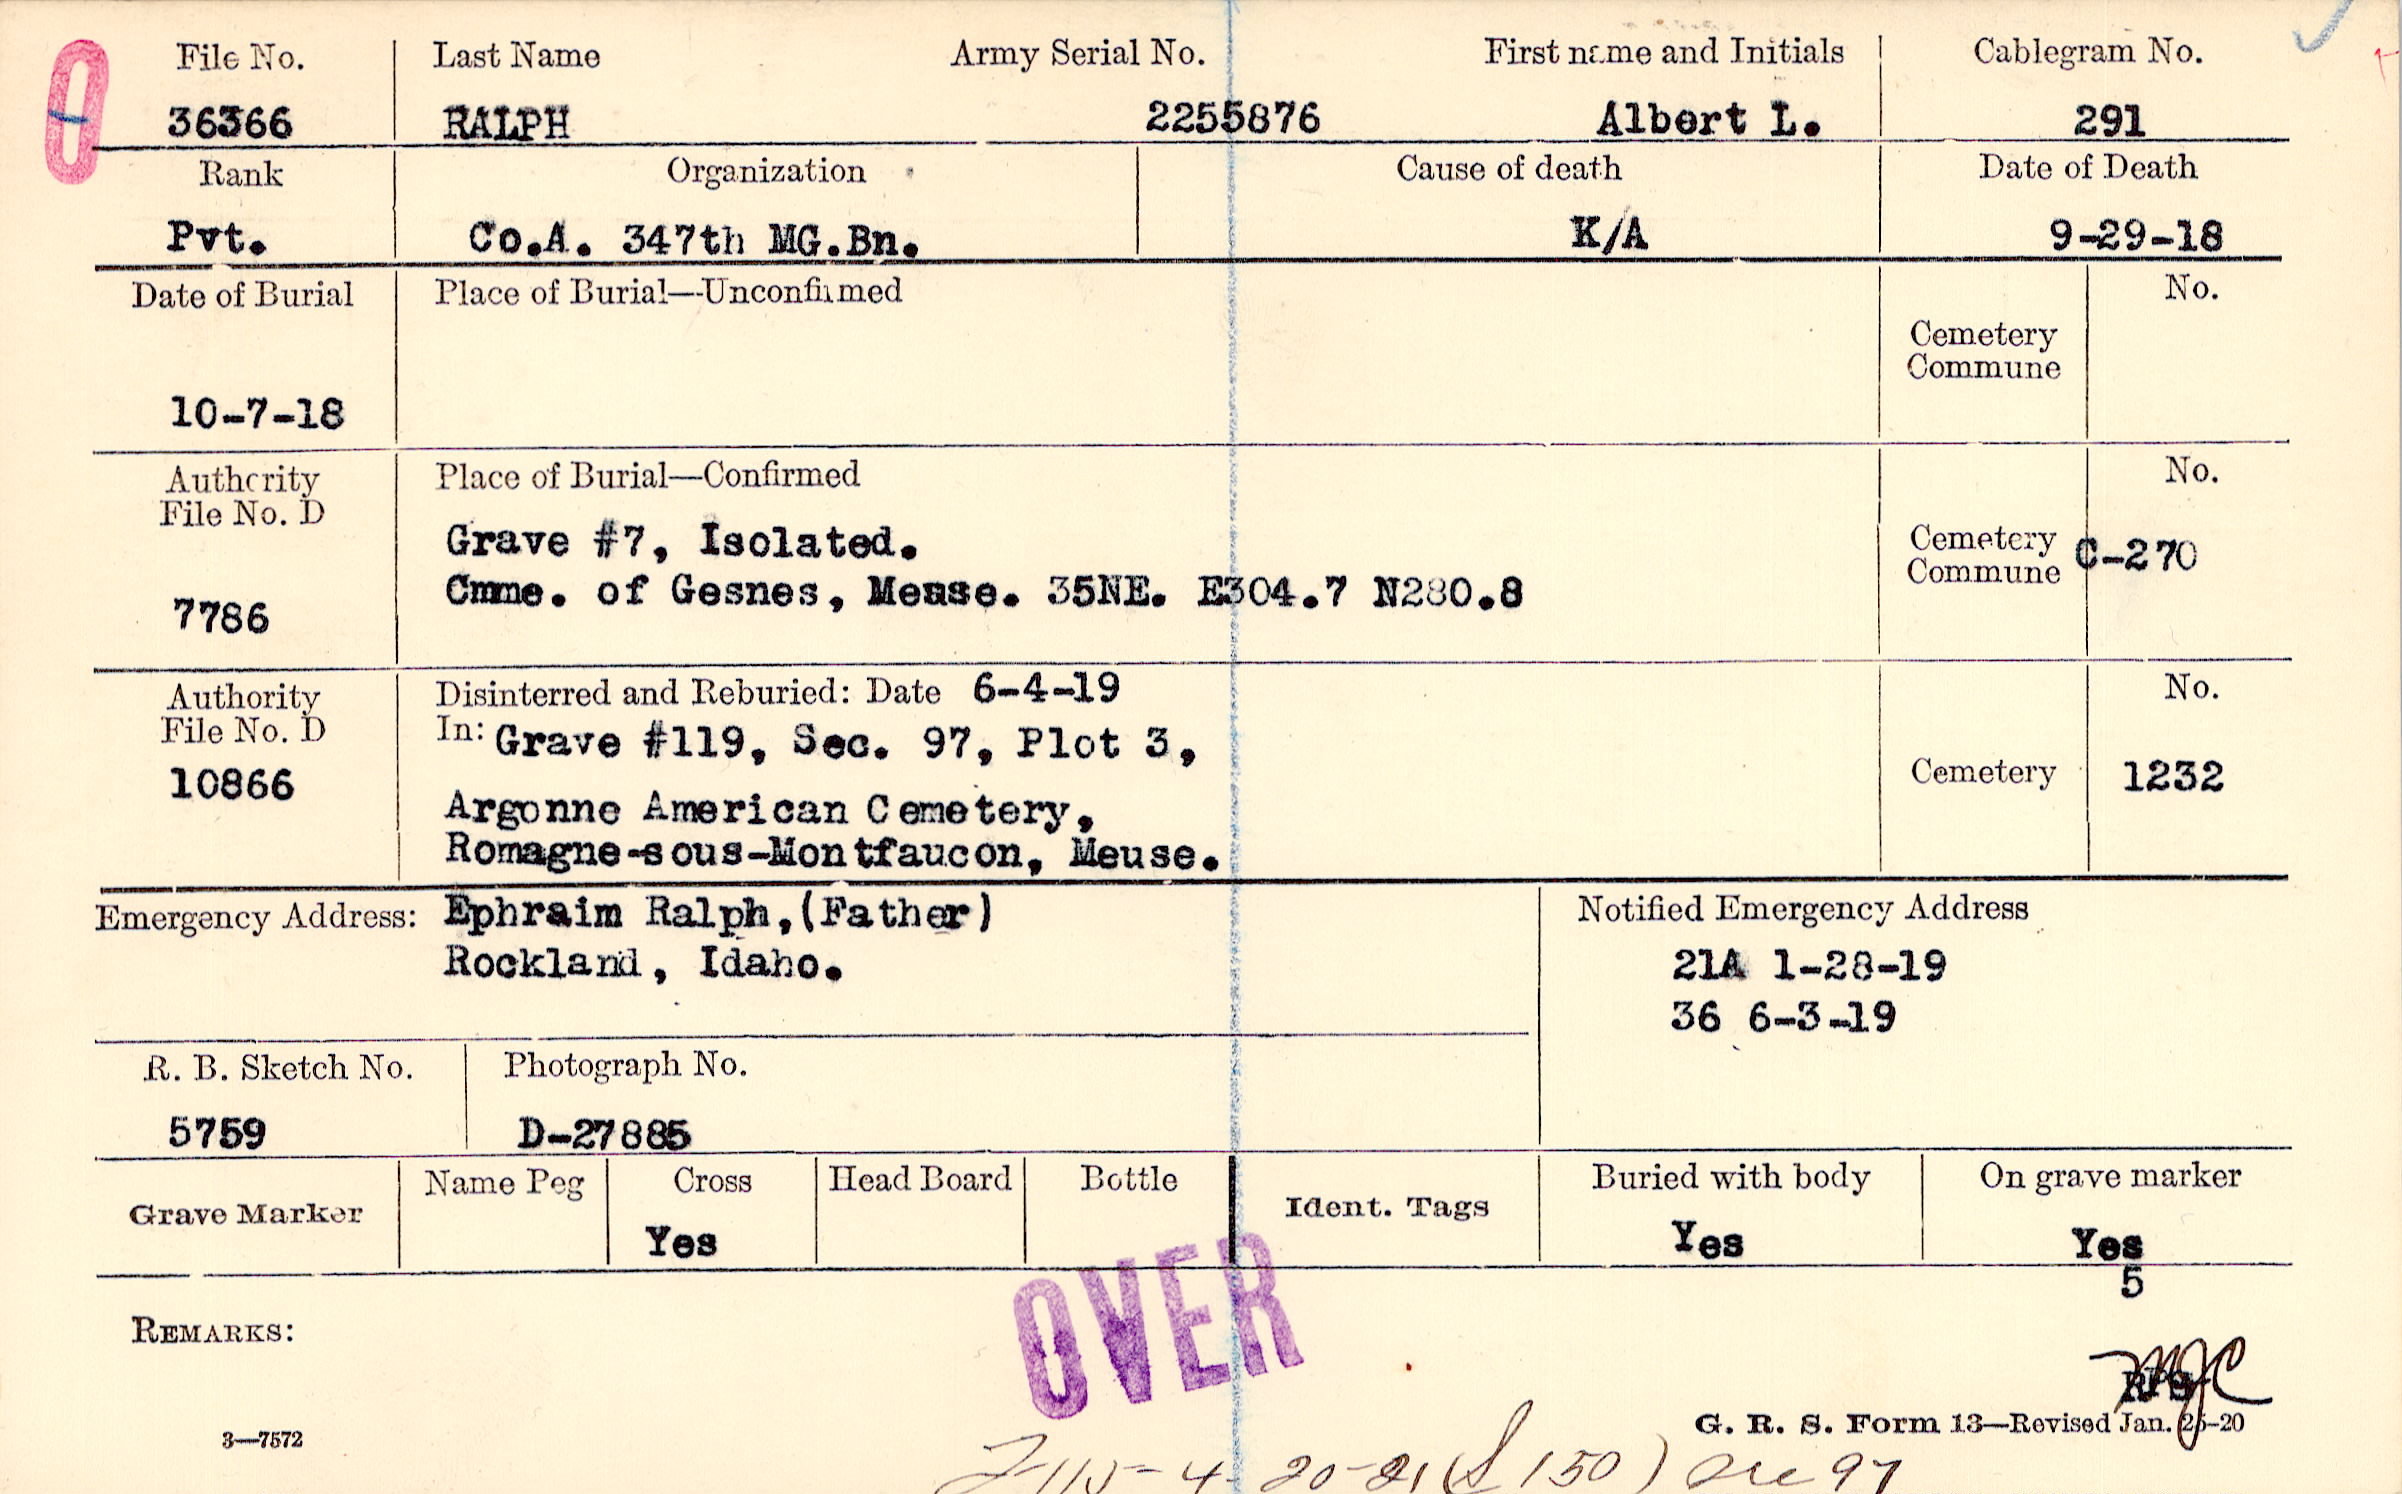 File No. Last Name Army Serial No. First name and Initials Cablegram No.
36366 RALPH 2255876 Albert L. 291
Rank Organization Cause of death Date of Death
Pvt. Co.A. 347th MG.Bn. K/A 9-29-18
Date of Burial Place of Burial—Unconfirmed No.
Cemetery
Commune
10-7-18
Authority Place of Burial—Confirmed No.
File No. D
Grave #7, Isolated.
Cemetery C-270
Commune
Cmme. of Gesnes, Meuse. 35NE. E304.7 N280.8
7786
Authority Disinterred and Reburied: Date 6-4-19 No.
File No. D In: Grave #119, Sec. 97, Plot 3,
10866 Cemetery 1232
Argonne American Cemetery,
Romagne-sous-Montfaucon, Meuse.
Emergency Address: Ephraim Ralph,(Father) Notified Emergency Address
Rockland, Idaho. 21A 1-28-19
36 6-3-19
R. B. Sketch No. Photograph No.
5759 D-27885
Grave Marker Name Peg Cross Head Board Bottle Ident. Tags Buried with body On grave marker
Yes Yes Yes
5
OVER
REMARKS:
MJC
G. R. S. Form 13—Revised Jan. 26-20
3—7572
4-20-21 (S 150) Sec 97